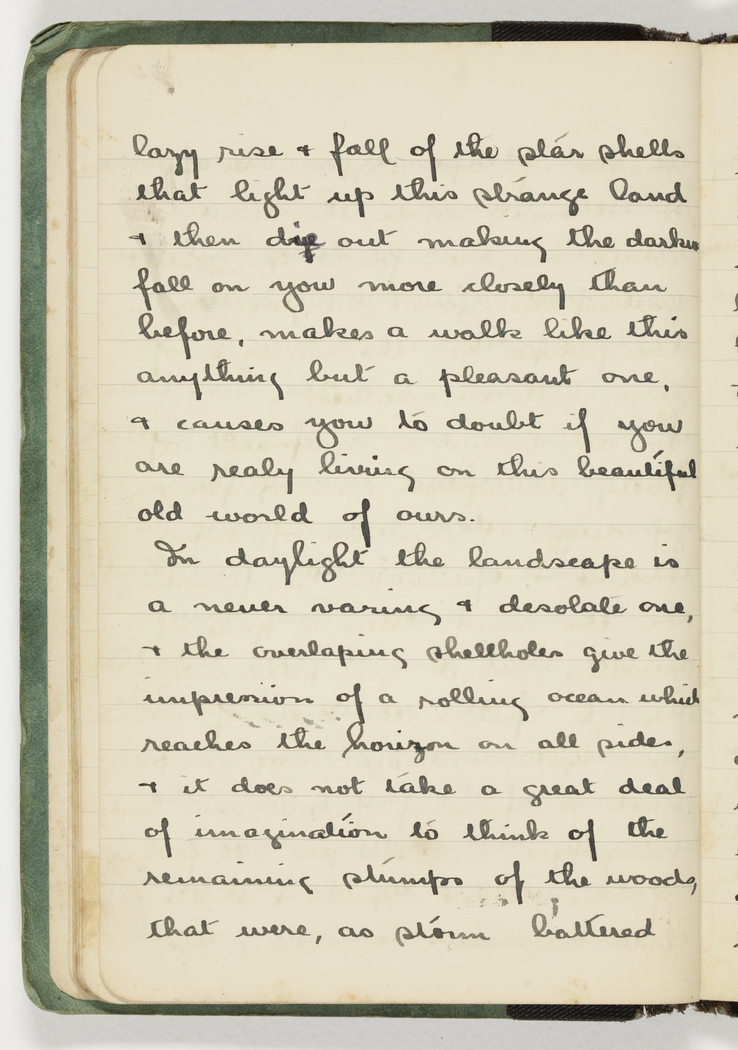 lazy rise & fall of the star shells
that light up this strange land
& then die out making the
fall on you more closely than
before, makes a walk like this
anything but a pleasant one,
& causes you to doubt if you
are realy living on this beautiful
old world of ours.
In daylight the landscape is
a never varing & desolate one,
& the overlaping shellholes give the
impression of a rolling ocean which
reaches the horizon on all sides,
& it does not take a great deal
of imagination to think of the
remaining stumps of the woods,
that were, as storm battered